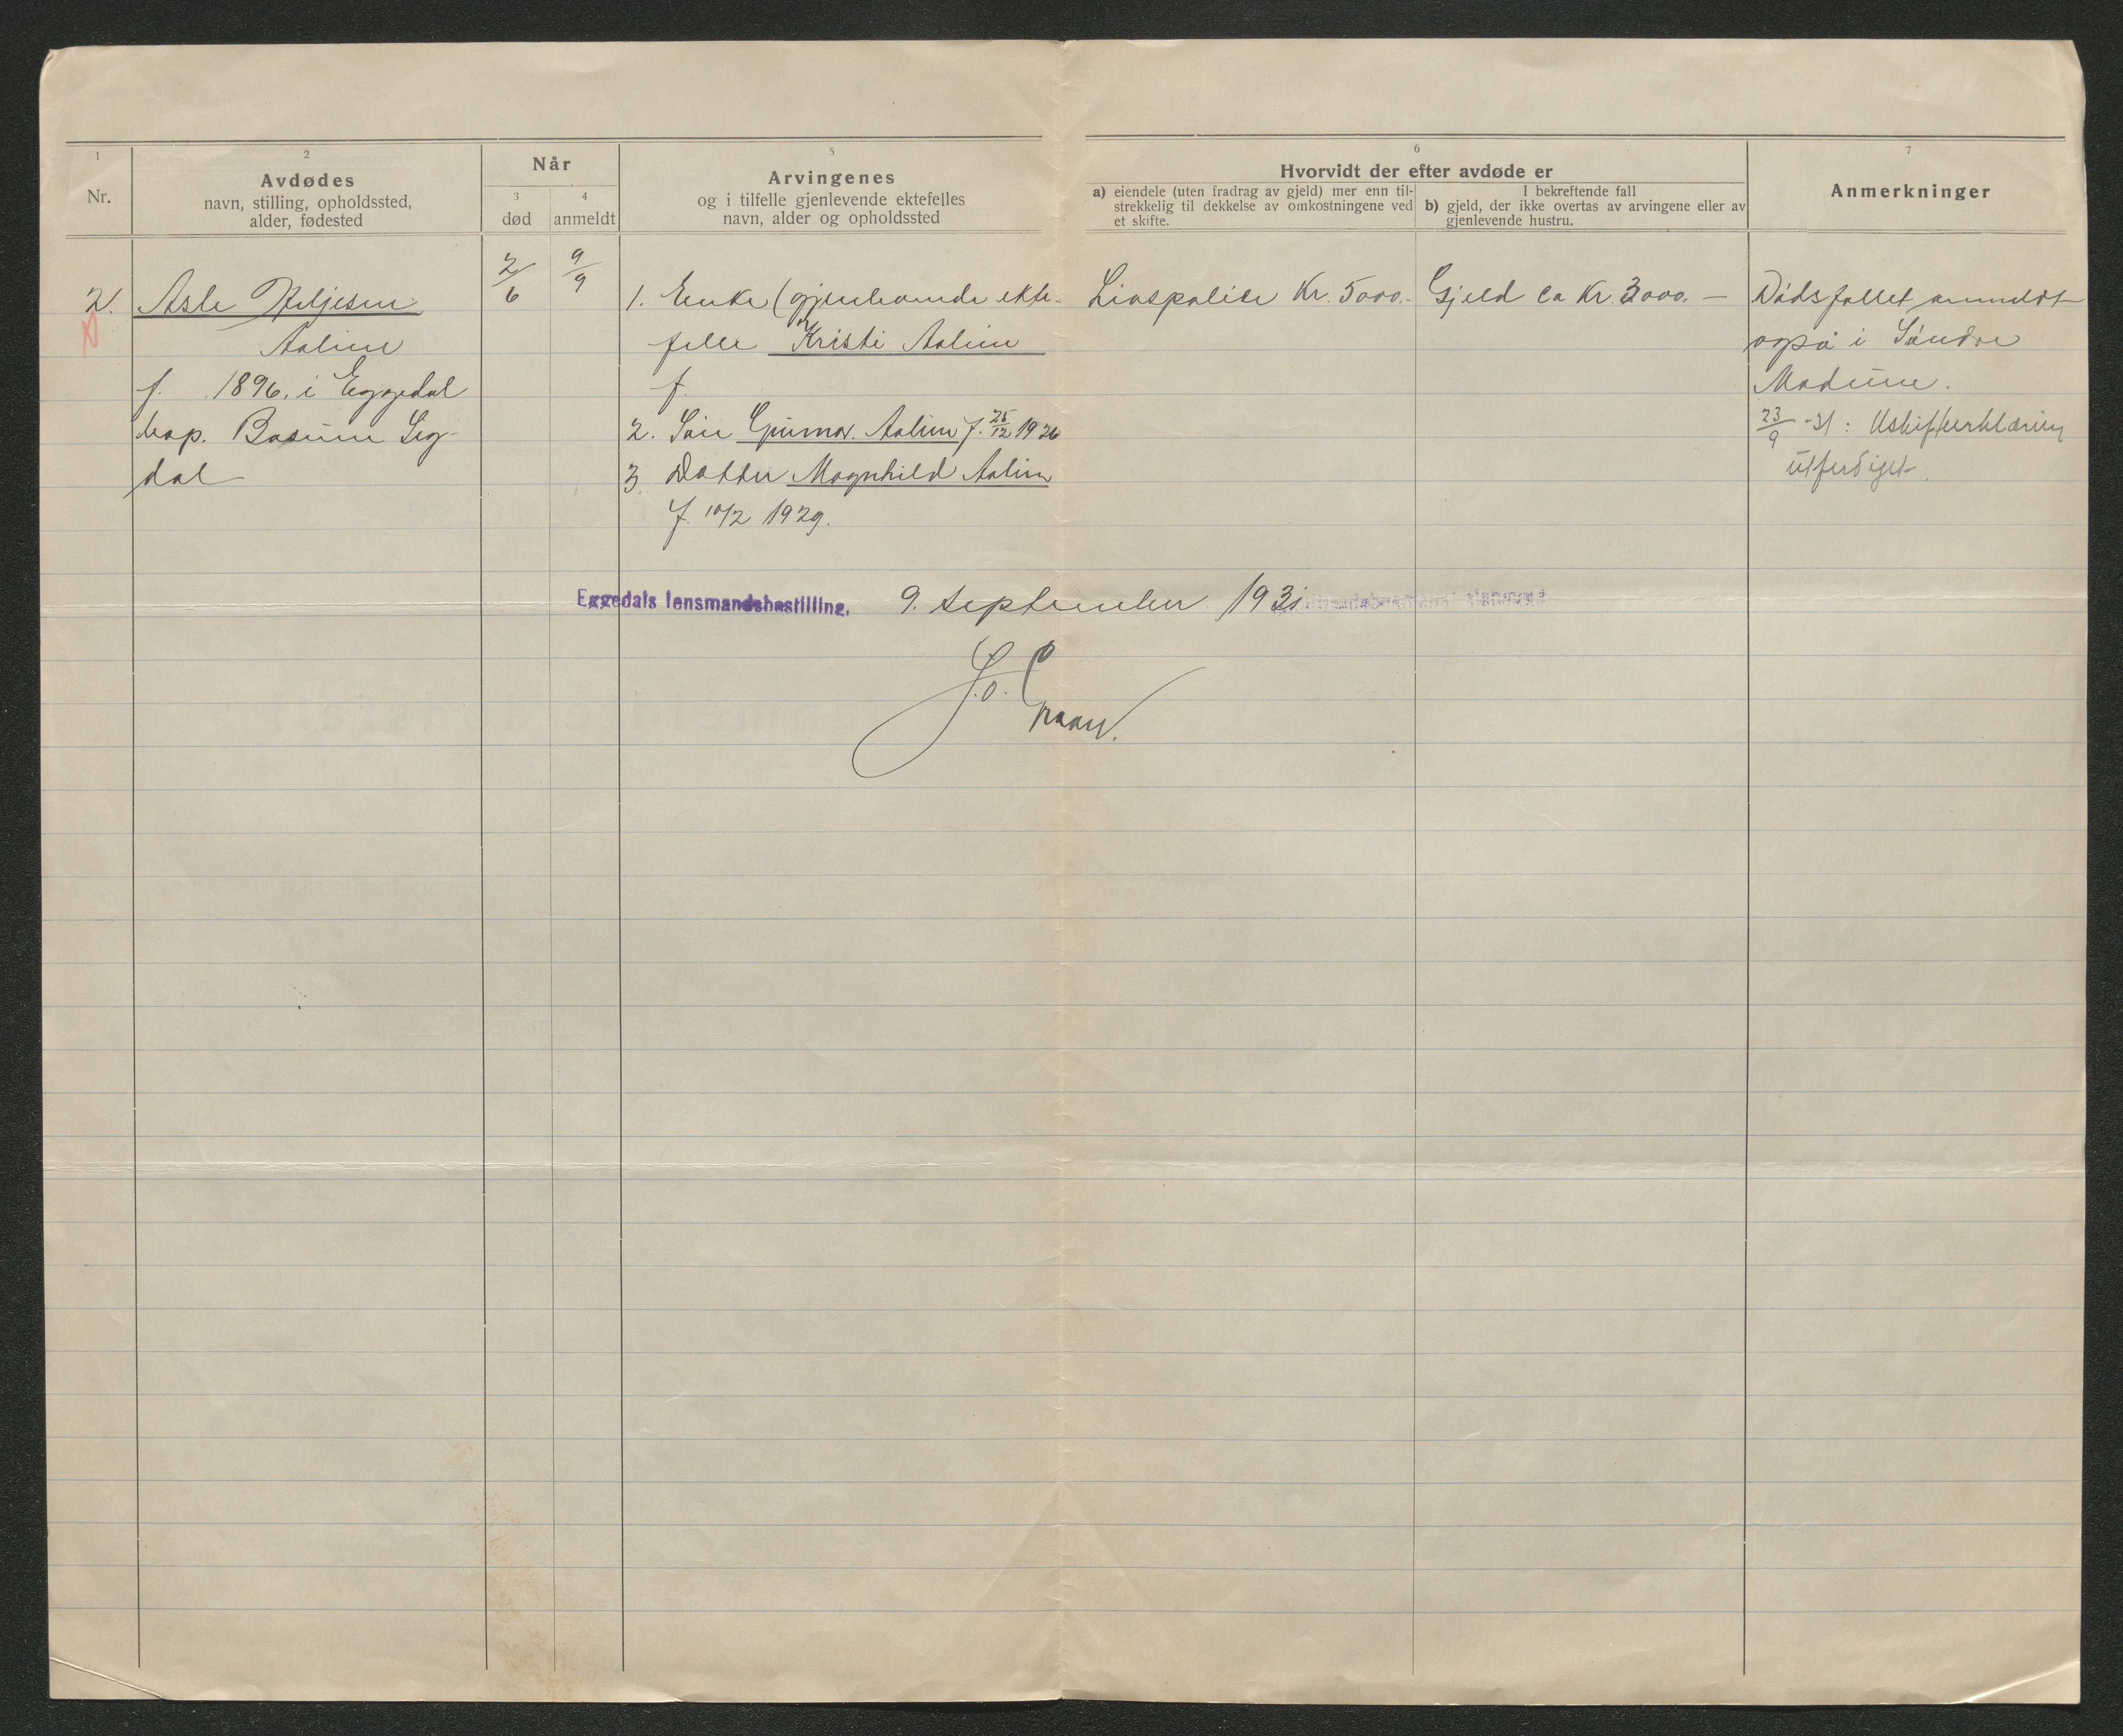 1
Nr.
2
Avdødes
navn, stilling, opholdssted,
alder, fødested
Når
3
død
4
anmeldt
5
Arvingenes
og i tilfelle gjenlevende ektefelles
navn, alder og opholdssted
6
Hvorvidt der efter avdøde er
a) eiendele (uten fradrag av gjeld) mer enn til-
strekkelig til dekkelse av omkostningene ved
et skifte.
I bekreftende fall
b) gjeld, der ikke overtas av arvingene eller av
gjenlevende hustru.
7
Anmerkninger
2.
Asle Heljesen
Aalien
f. 1896. i Eggedal
Sig-
dal
2/6
9/9
1. Enke (gjenlevende ekte-
felle Kristi Aalien
f.
2. Søn Gunnar Aalien f. 25/12 1926
3 Datter Magnhild Aalien
f. 10/2 1929.
Livspolice Kr. 5000.-
Gjeld ca Kr. 3000. -
Dødsfallet anmeldt
også i Søndre
Modum.
23/9 -31: Uskifteerklæring
utferdiget.
Eggedals lensmandsbestilling, 9. september 1931